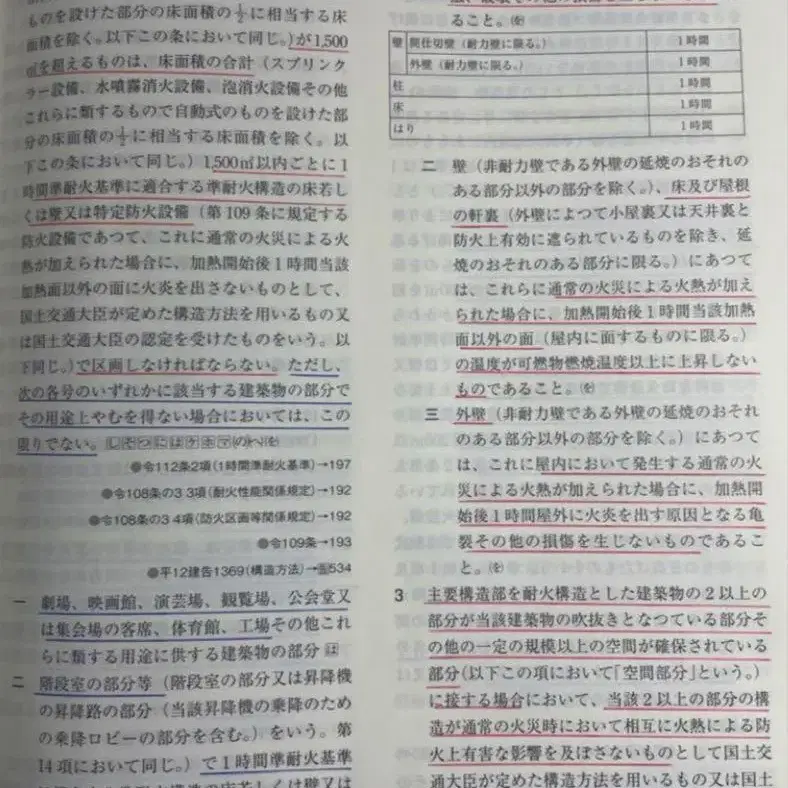 ものを設けた部分の床面積の1/2に相当する床
面積を除く。以下この条において同じ。)が1,500
㎡を超えるものは、床面積の合計(スプリンク
ラー設備、水噴霧消火設備、泡消火設備その他
これらに類するもので自動式のものを設けた部
分の床面積の1/2に相当する床面積を除く。以
下この条において同じ。)1,500㎡以内ごとに1
時間準耐火基準に適合する準耐火構造の床若し
くは壁又は特定防火設備(第109条に規定する
防火設備であつて、これに通常の火災による火
熱が加えられた場合に、加熱開始後1時間当該
加熱面以外の面に火炎を出さないものとして、
国土交通大臣が定めた構造方法を用いるもの又
は国土交通大臣の認定を受けたものをいう。以
下同じ。)で区画しなければならない。ただし、
次の各号のいずれかに該当する建築物の部分で
その用途上やむを得ない場合においては、この
限りでない。
●令112条2項(1時間準耐火基準)→197
●令108条の3 3項(耐火性能関係規定)→192
●令108条の3 4項(防火区画等関係規定)→192
●令109条→193
●平12建告1369(構造方法)→告534
一 劇場、映画館、演芸場、観覧場、公会堂又
は集会場の客席、体育館、工場その他これ
らに類する用途に供する建築物の部分
二 階段室の部分等(階段室の部分又は昇降機
の昇降路の部分(当該昇降機の乗降のため
の乗降ロビーの部分を含む。)をいう。第
14項において同じ。)で1時間準耐火基準
ること。(を)
壁 間仕切壁(耐力壁に限る。) 1時間
外壁(耐力壁に限る。) 1時間
柱 1時間
床 1時間
はり 1時間
二 壁(非耐力壁である外壁の延焼のおそれの
ある部分以外の部分を除く。)、床及び屋根
の軒裏(外壁によつて小屋裏又は天井裏と
防火上有効に遮られているものを除き、延
焼のおそれのある部分に限る。)にあつて
は、これらに通常の火災による火熱が加え
られた場合に、加熱開始後1時間当該加熱
面以外の面(屋内に面するものに限る。)
の温度が可燃物燃焼温度以上に上昇しない
ものであること。(を)
三 外壁(非耐力壁である外壁の延焼のおそれ
のある部分以外の部分を除く。)にあつて
は、これに屋内において発生する通常の火
災による火熱が加えられた場合に、加熱開
始後1時間屋外に火炎を出す原因となる亀
裂その他の損傷を生じないものであるこ
と。(を)
3 主要構造部を耐火構造とした建築物の2以上の
部分が当該建築物の吹抜きとなつている部分そ
の他の一定の規模以上の空間が確保されている
部分(以下この項において「空間部分」という。)
に接する場合において、当該2以上の部分の構
造が通常の火災時において相互に火熱による防
火上有害な影響を及ぼさないものとして国土交
通大臣が定めた構造方法を用いるもの又は国土